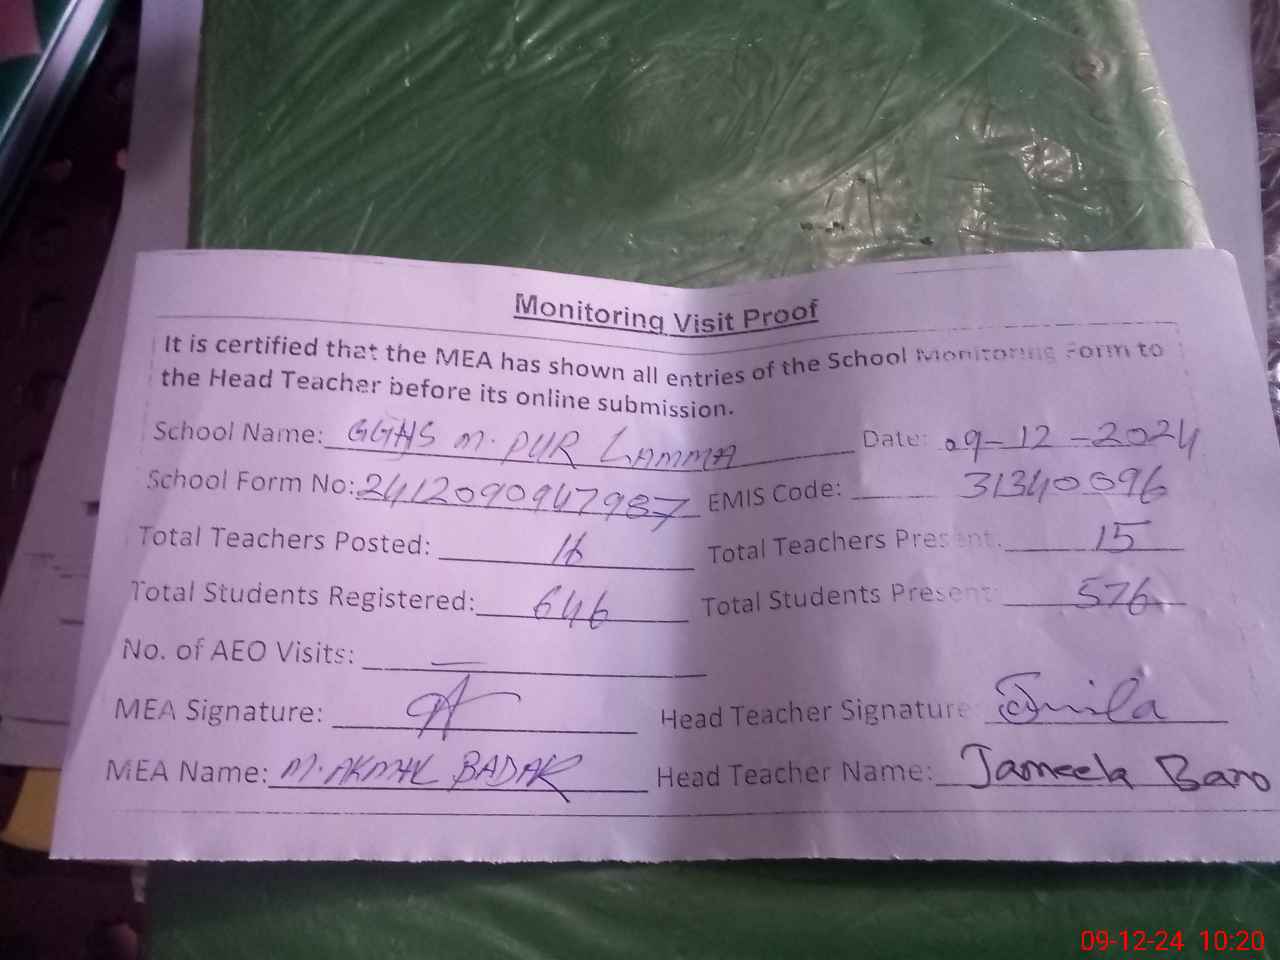 Monitoring Visit Proof
It is certified that the MEA has shown all entries of the School Monitoring Form to
the Head Teacher before its online submission.
School Name: GGHS M. PUR LAMMA Date: 09-12-2024
School Form No: 2412090947987 EMIS Code: 31340096
Total Teachers Posted: 16 Total Teachers Present: 15
Total Students Registered: 646 Total Students Present: 576
No. of AEO Visits: —
MEA Signature: Head Teacher Signature: Jmila
MEA Name: M. AKMAL BADAR Head Teacher Name: Jameela Bano
09-12-24 10:20